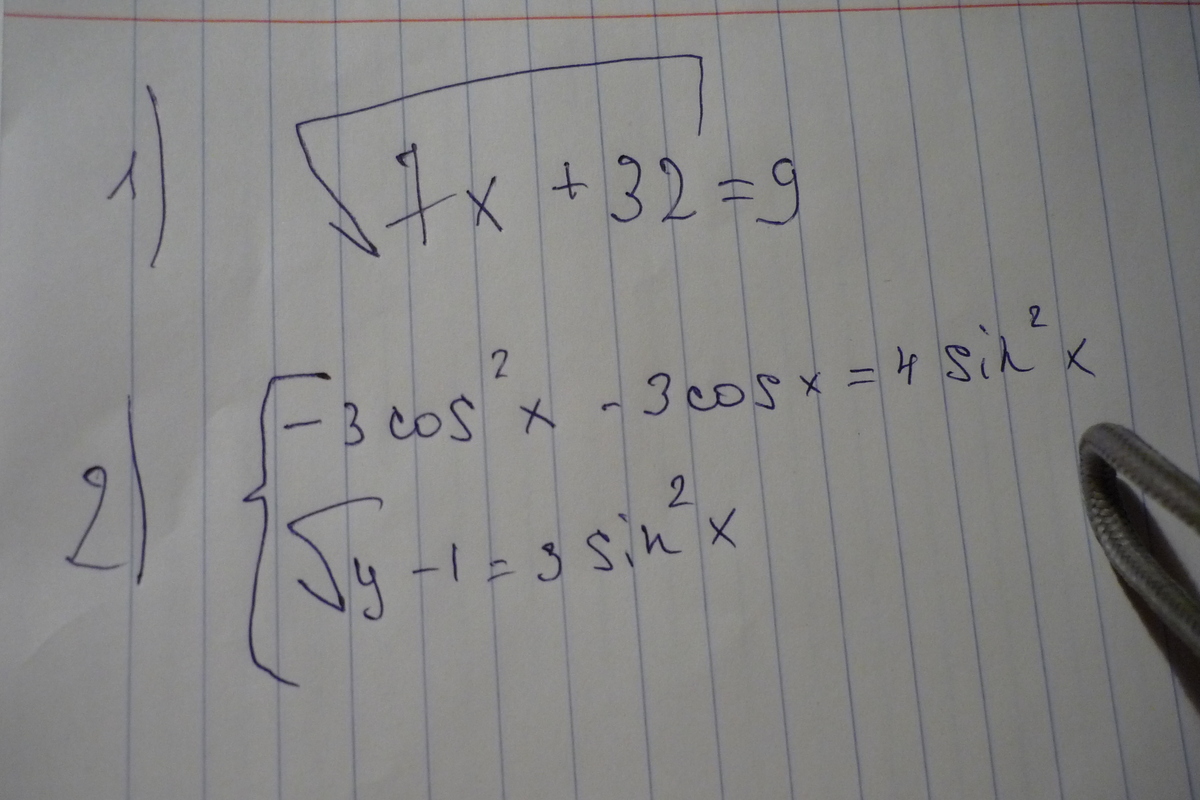 1) √7x + 32 = 9
2) { - 3 cos² x - 3 cos x = 4 sin² x
√y - 1 = 3 sin² x